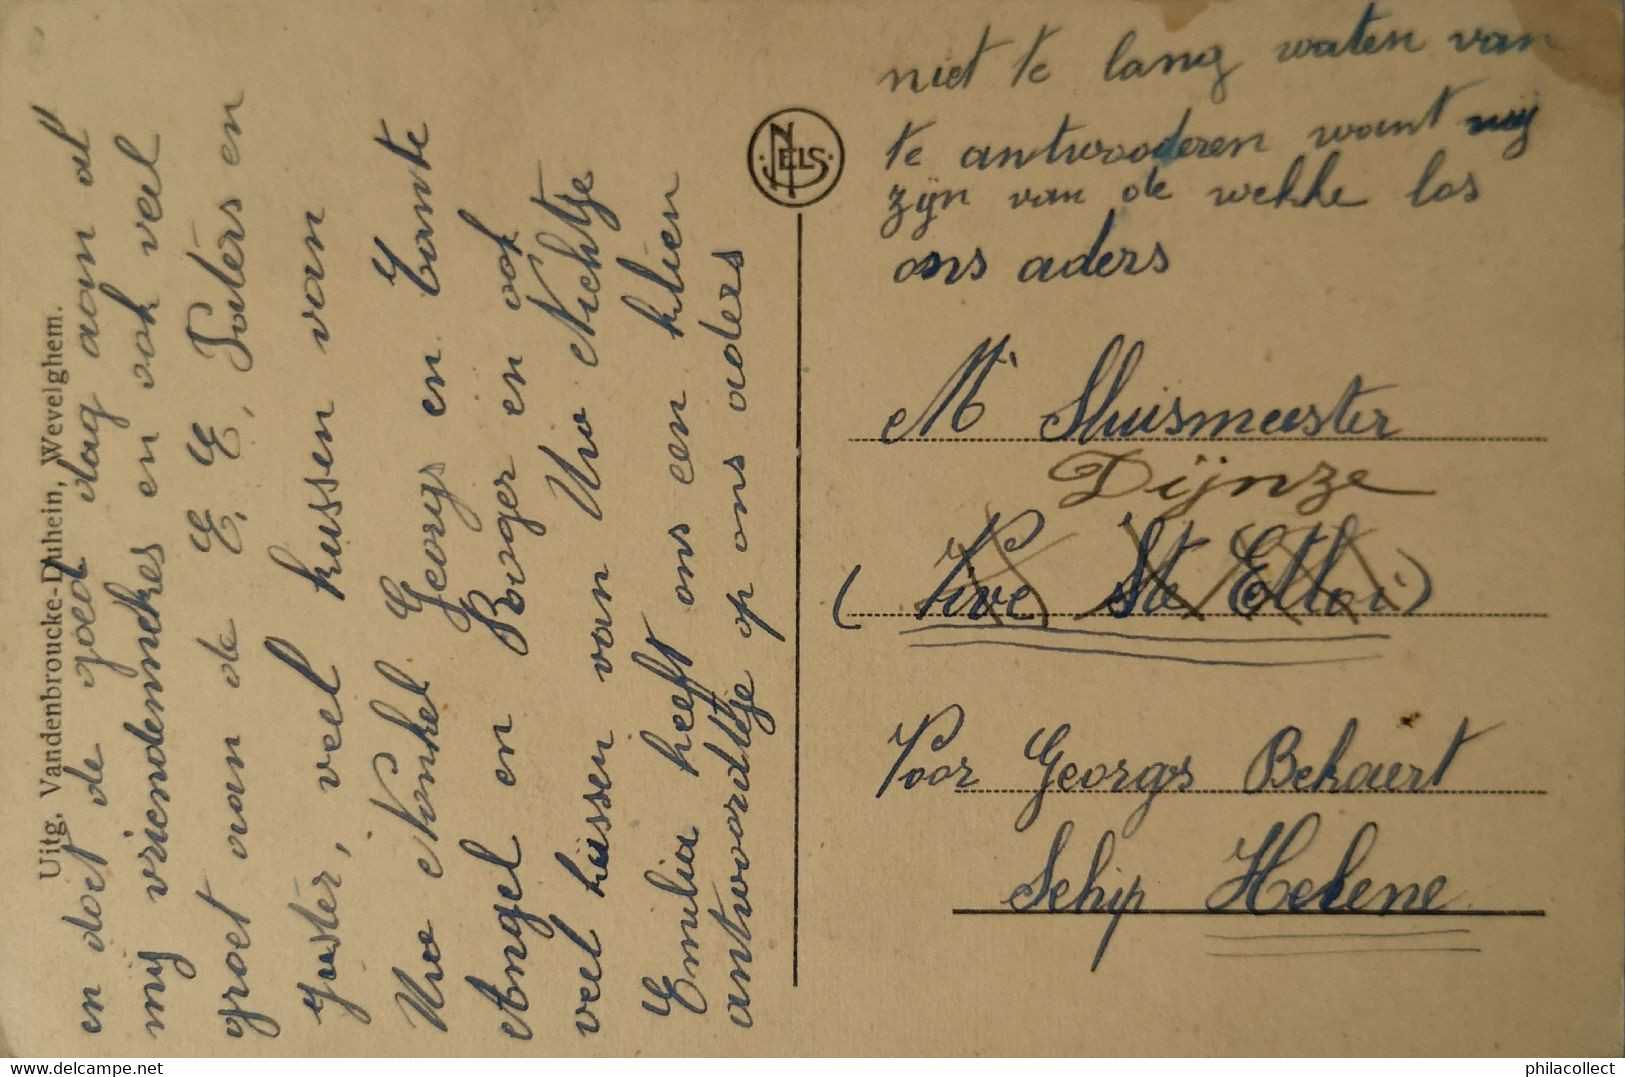 Uitg. Vandenbroucke-Duhein, Wevelghem.
en doet de goed dag aan al
mij vriendemekes en ook veel
groet van de E, E, Poters en
Juster, veel kussen van
Uwe Nonkel Georgs en Tante
Angel en Rooger en ook
veel kussen van Uw Nichtje
Emilia heeft ons een klien
antwoordtje op ons aders
NELS
niet te lang waten van
te antwooderen want wij
zijn van de wekke los
ons aders
Mr Sluismeester
Dijnze
( Vive Ste Elloi )
Voor Georgs Bekaert
Schip Helene
www.delcampe.net
philacollect